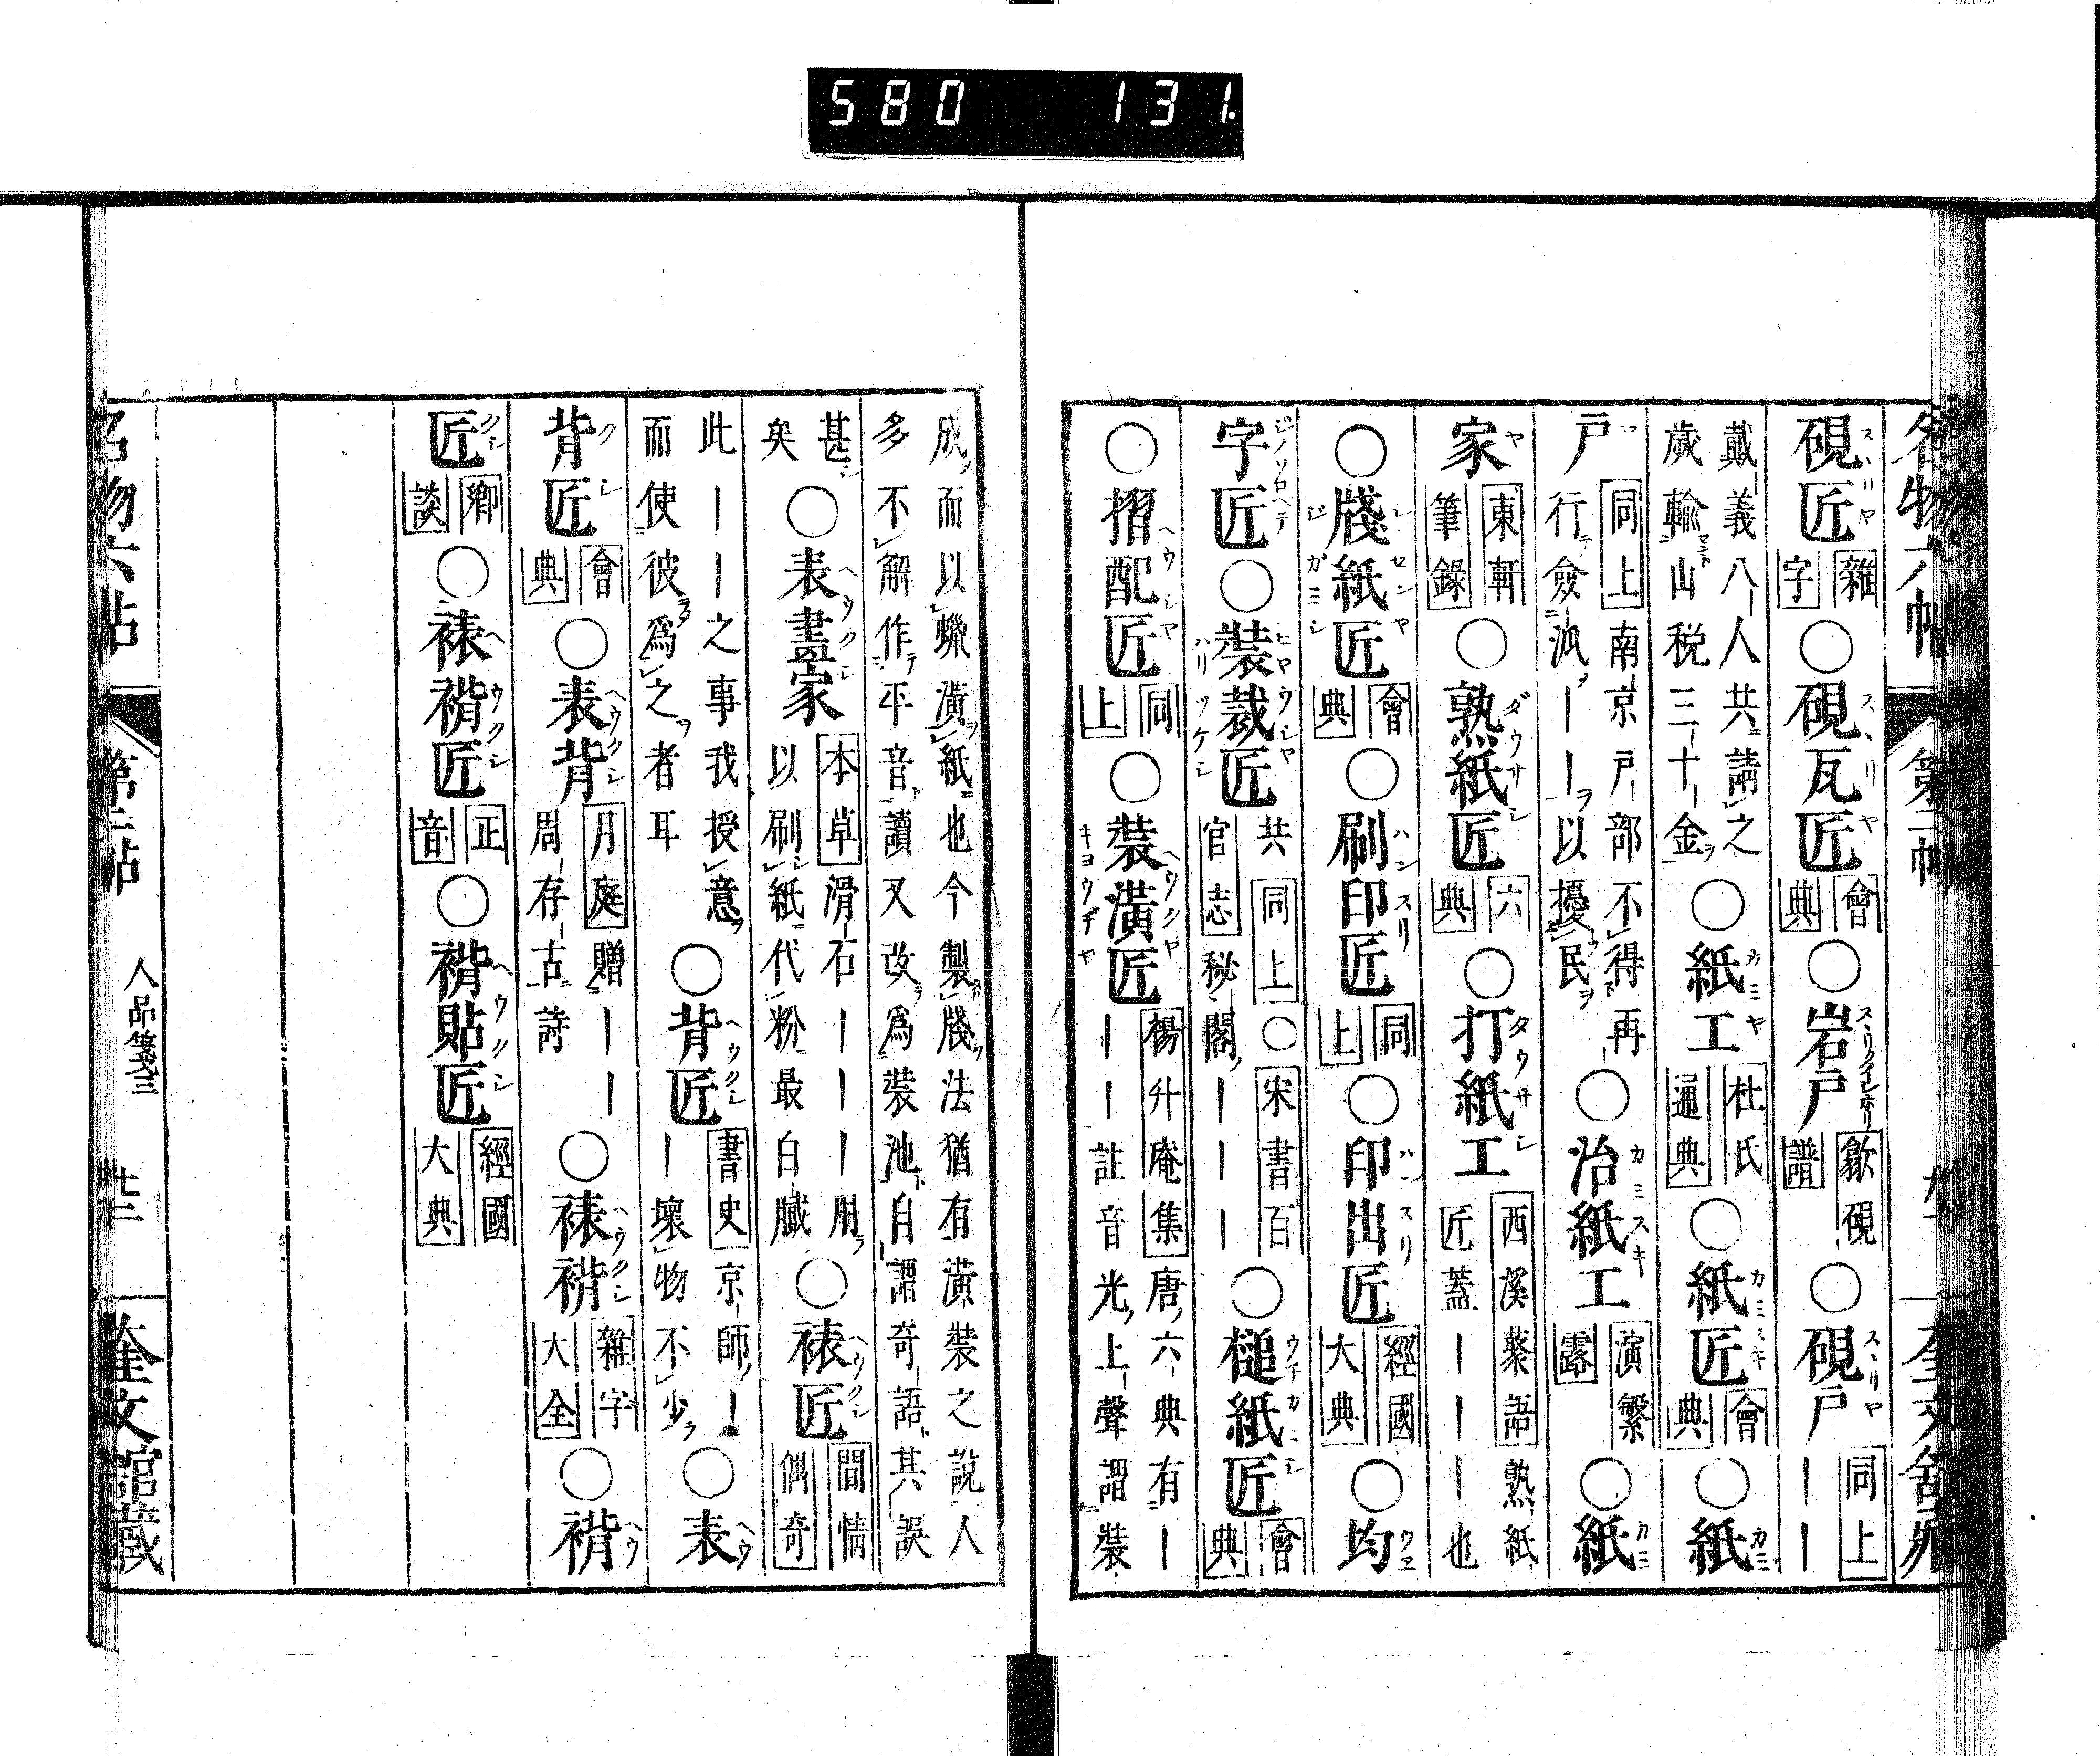 580 131.
硯匠 雜字 ○硯瓦匠 會典 ○岩戸 歙硯譜 ○硯戸 同上 ｜｜
戴義八人共請之歲輸山税三十金 ○紙工 杜氏通典 ○紙匠 會典 ○紙
戸 同上 南京戸部不得再行僉派｜｜以擾民 ○治紙工 演繁露 ○紙
家 東軒筆錄 ○熟紙匠 六典 ○打紙工 西溪藂語 熟紙匠蓋｜｜｜也
○牋紙匠 會典 ○刷印匠 同上 ○印出匠 經國大典 ○均
字匠 ○裝裁匠 共同上 ○宋書百官志 秘閣｜｜｜ ○槌紙匠 會典
○摺配匠 同上 ○裝潢匠 楊升庵集 唐六典有｜｜｜註音光上聲謂裝
成而以蠟潢紙也今製牋法猶有潢裝之說人多不解作平音讀又改爲裝池自謂奇語其誤
甚矣 ○表畫家 本草 滑石｜｜｜用以刷紙代粉最白膩 ○裱匠 閒情偶奇
此｜｜之事我授意而使彼爲之者耳 ○背匠 書史 京師｜｜壞物不少 ○表
背匠 會典 ○表背 月庭 贈｜｜周存古詩 ○裱褙 雜字大全 ○褙
匠 鄉談 ○裱褙匠 正音 ○褙貼匠 經國大典
人品箋三